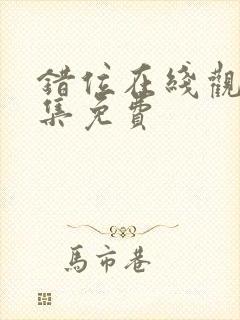 錯位在綫觀
集免費
馬市巷